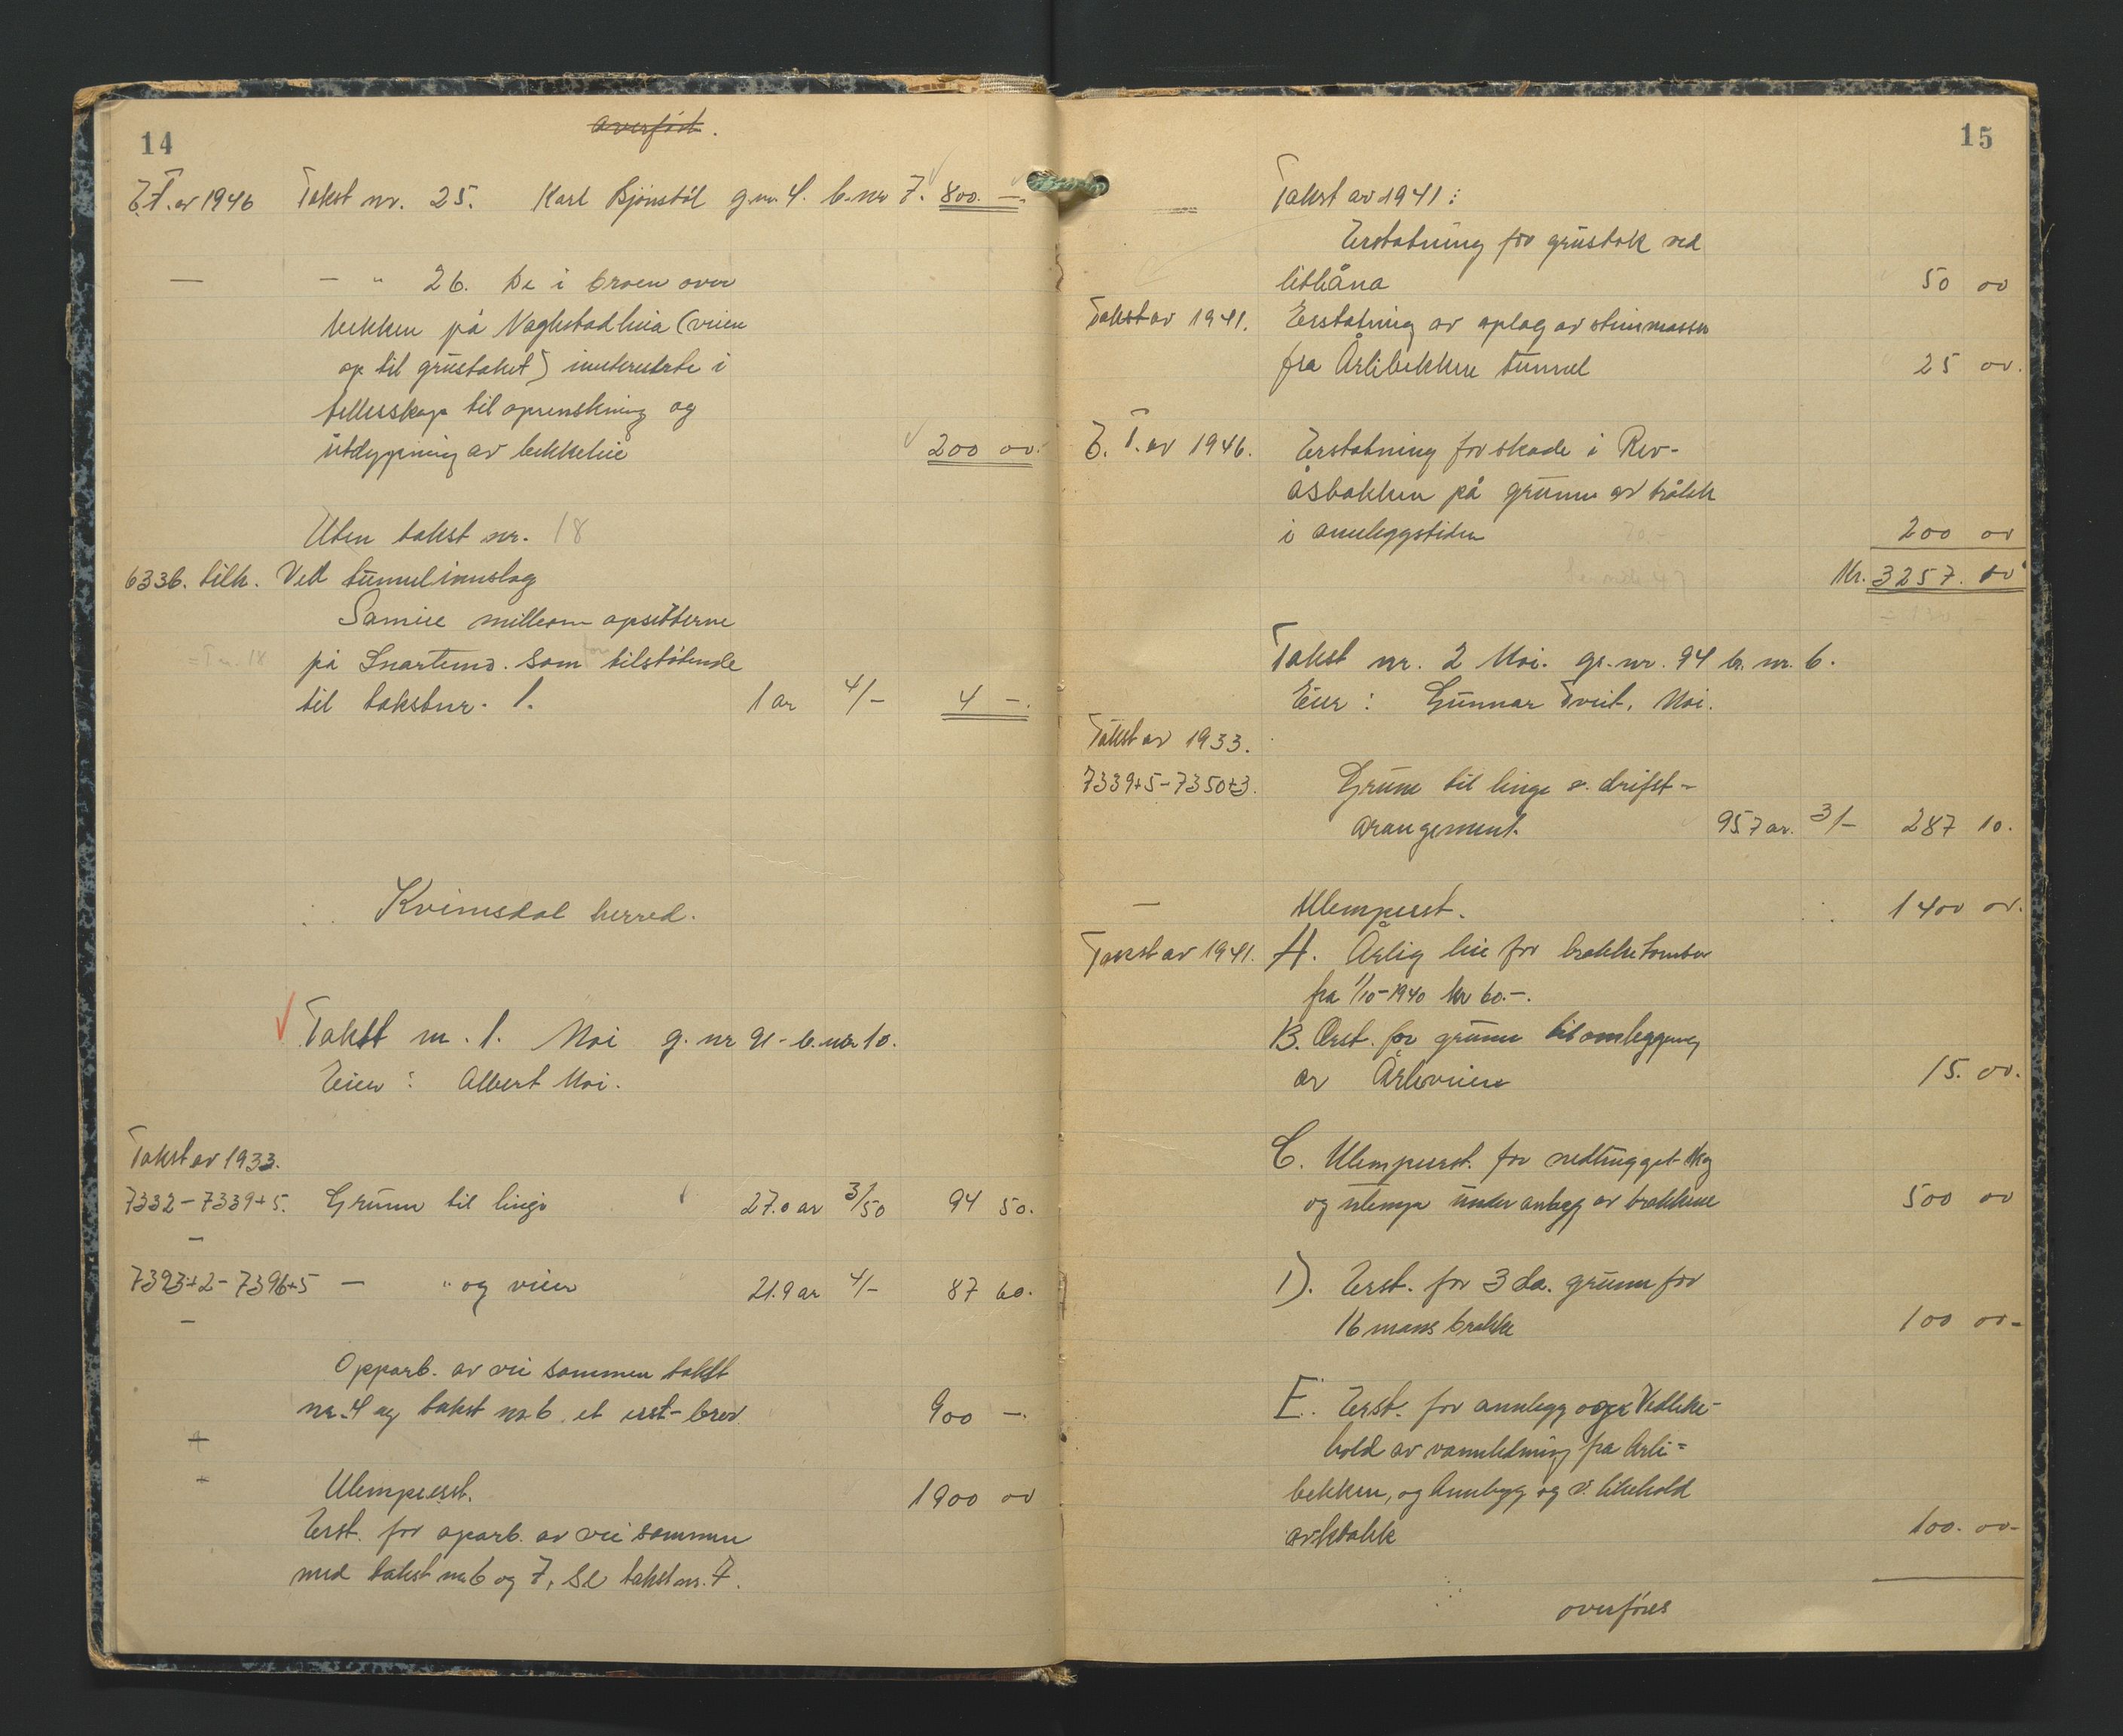 14
Overført.
E.T. av 1946 Takst nr. 25. Karl Bjønstøl g.nr. 4. b.nr 7. 800. —.
— — " 26. De i broen over
bekken på Naglestadheia (veien
op til grustaket) interesserte i
fellesskap til oprenskning og
utdypning av bekkeleie 200 00.
Uten takst nr. 18
6336. tilh. Ved tunnelinnslag
Sameie mellom opsitterne
=T nr. 18 på Snartemo. Som for tilstøtende
til takstnr. 1. 1 ar 4/- 4 —.
Kvinesdal herred.
Takst nr. 1. Moi g. nr 91 - b. nr 10.
Eier: Albert Moi.
Takst av 1933.
7332 - 7339+5. Grunn til linje 27.0 ar 3/50 94 50.
—
7393+2 - 7396+5 — " og veier 21.9 ar 4/- 87 60.
—
Opparb. av vei sammen takst
nr. 4 og takst nr 6. et erst-brev 900 —.
Ulempeerst. 1900 00
Erst. for oparb. av vei sammen
med takst nr 6 og 7, se takst nr. 7.
15
— Takst av 1941:
Erstatning for grustak ved
litleåna 50 00
Takst av 1941. Erstatning av oplag av steinmasser
fra Årlibekken tunnel 25 00.
E. T. av 1946. Erstatning for skade i Rev-
åsbakken på grunn av tråkk
i anleggstiden 200 00
Kr. 3257. 10
Takst nr. 2 Moi. gr. nr. 94 br. nr. 6.
Eier: Gunnar Tveit, Moi.
Takst av 1933.
7339+5 - 7350+3. Grunn til linje o. drifst-
arangement. 957 ar. 3/- 287 10.
— Ulempeerst. 1400 00.
Takst av 1941. A. Årlig leie for brakketomter
fra 1/10-1940 kr 60.-.
B. Erst. for grunn til omlegging
av Årliveien 15. 00.
C. Ulempeerst. for nedhugget skog
og ulempe under anlegg av brakkene 500 00
D. Erst. for 3 da. grunn for
16 manns brakke 100 00-
E. Erst. for annlegg og Vedlike-
hold av vannledning fra Årli-
bekken, og Annlegg og v. likehold
av 100. 00-
overføres